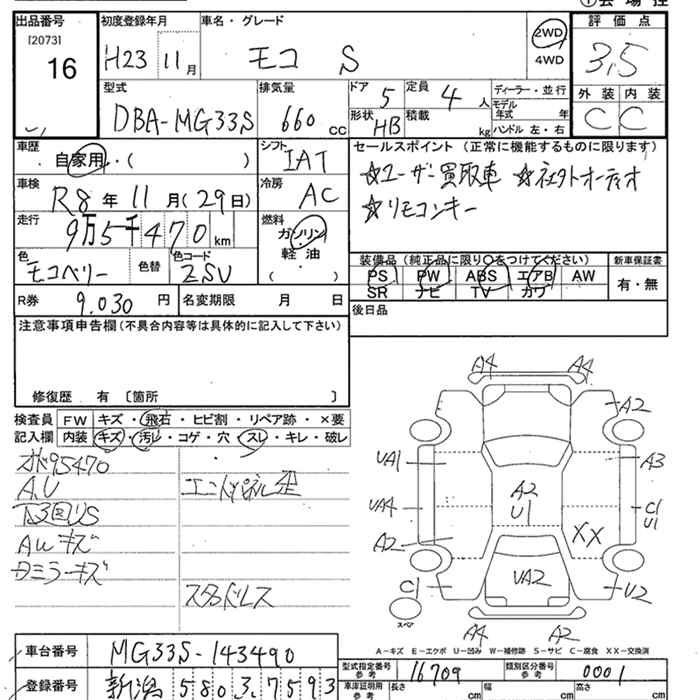 ①会場控
出品番号
[2073]
16
初度登録年月
H23 11月
車名・グレード
モコ S
2WD
4WD
評価点
3,5
型式
DBA-MG33S
排気量
660 cc
ドア
5
形状
HB
定員
4人
積載
kg
ディーラー・並行
モデル年式 年
ハンドル 左・右
外装 内装
C C
車歴
自家用・( )
シフト
IAT
セールスポイント(正常に機能するものに限ります)
☆ユーザー買取車 ☆社外オーディオ
☆リモコンキー
車検
R8年11月(29日)
冷房
AC
走行
9万5千470km
燃料
ガソリン
軽油
( )
色
モコベリー
色替
色コード
ZSU
装備品(純正品に限り○をつけてください)
PS PW ABS エアB AW
SR ナビ TV カワ
新車保証書
有・無
R券 9.030円
名変期限 月 日
後日品
注意事項申告欄(不具合内容等は具体的に記入して下さい)
修復歴 有 [箇所 ]
検査員記入欄
FW キズ・飛石・ヒビ割・リペア跡・×要
内装 キズ・汚レ・コゲ・穴・スレ・キレ・破レ
95470
A.U
AWキズ
スタッドレス
A4 A4
A2
UA1
A3
A2
U1
UA4
C1
U1
A2
XX
C1
UA2
U2
スペア
A4 A2
A-キズ E-エクボ U-凹み W-補修跡 S-サビ C-腐食 XX-交換済
車台番号
MG33S-143490
登録番号
新潟 580 3,7593
型式指定番号
参考
16709
類別区分番号
参考
0001
車庫証明用
参考
長さ cm
幅 cm
高さ cm